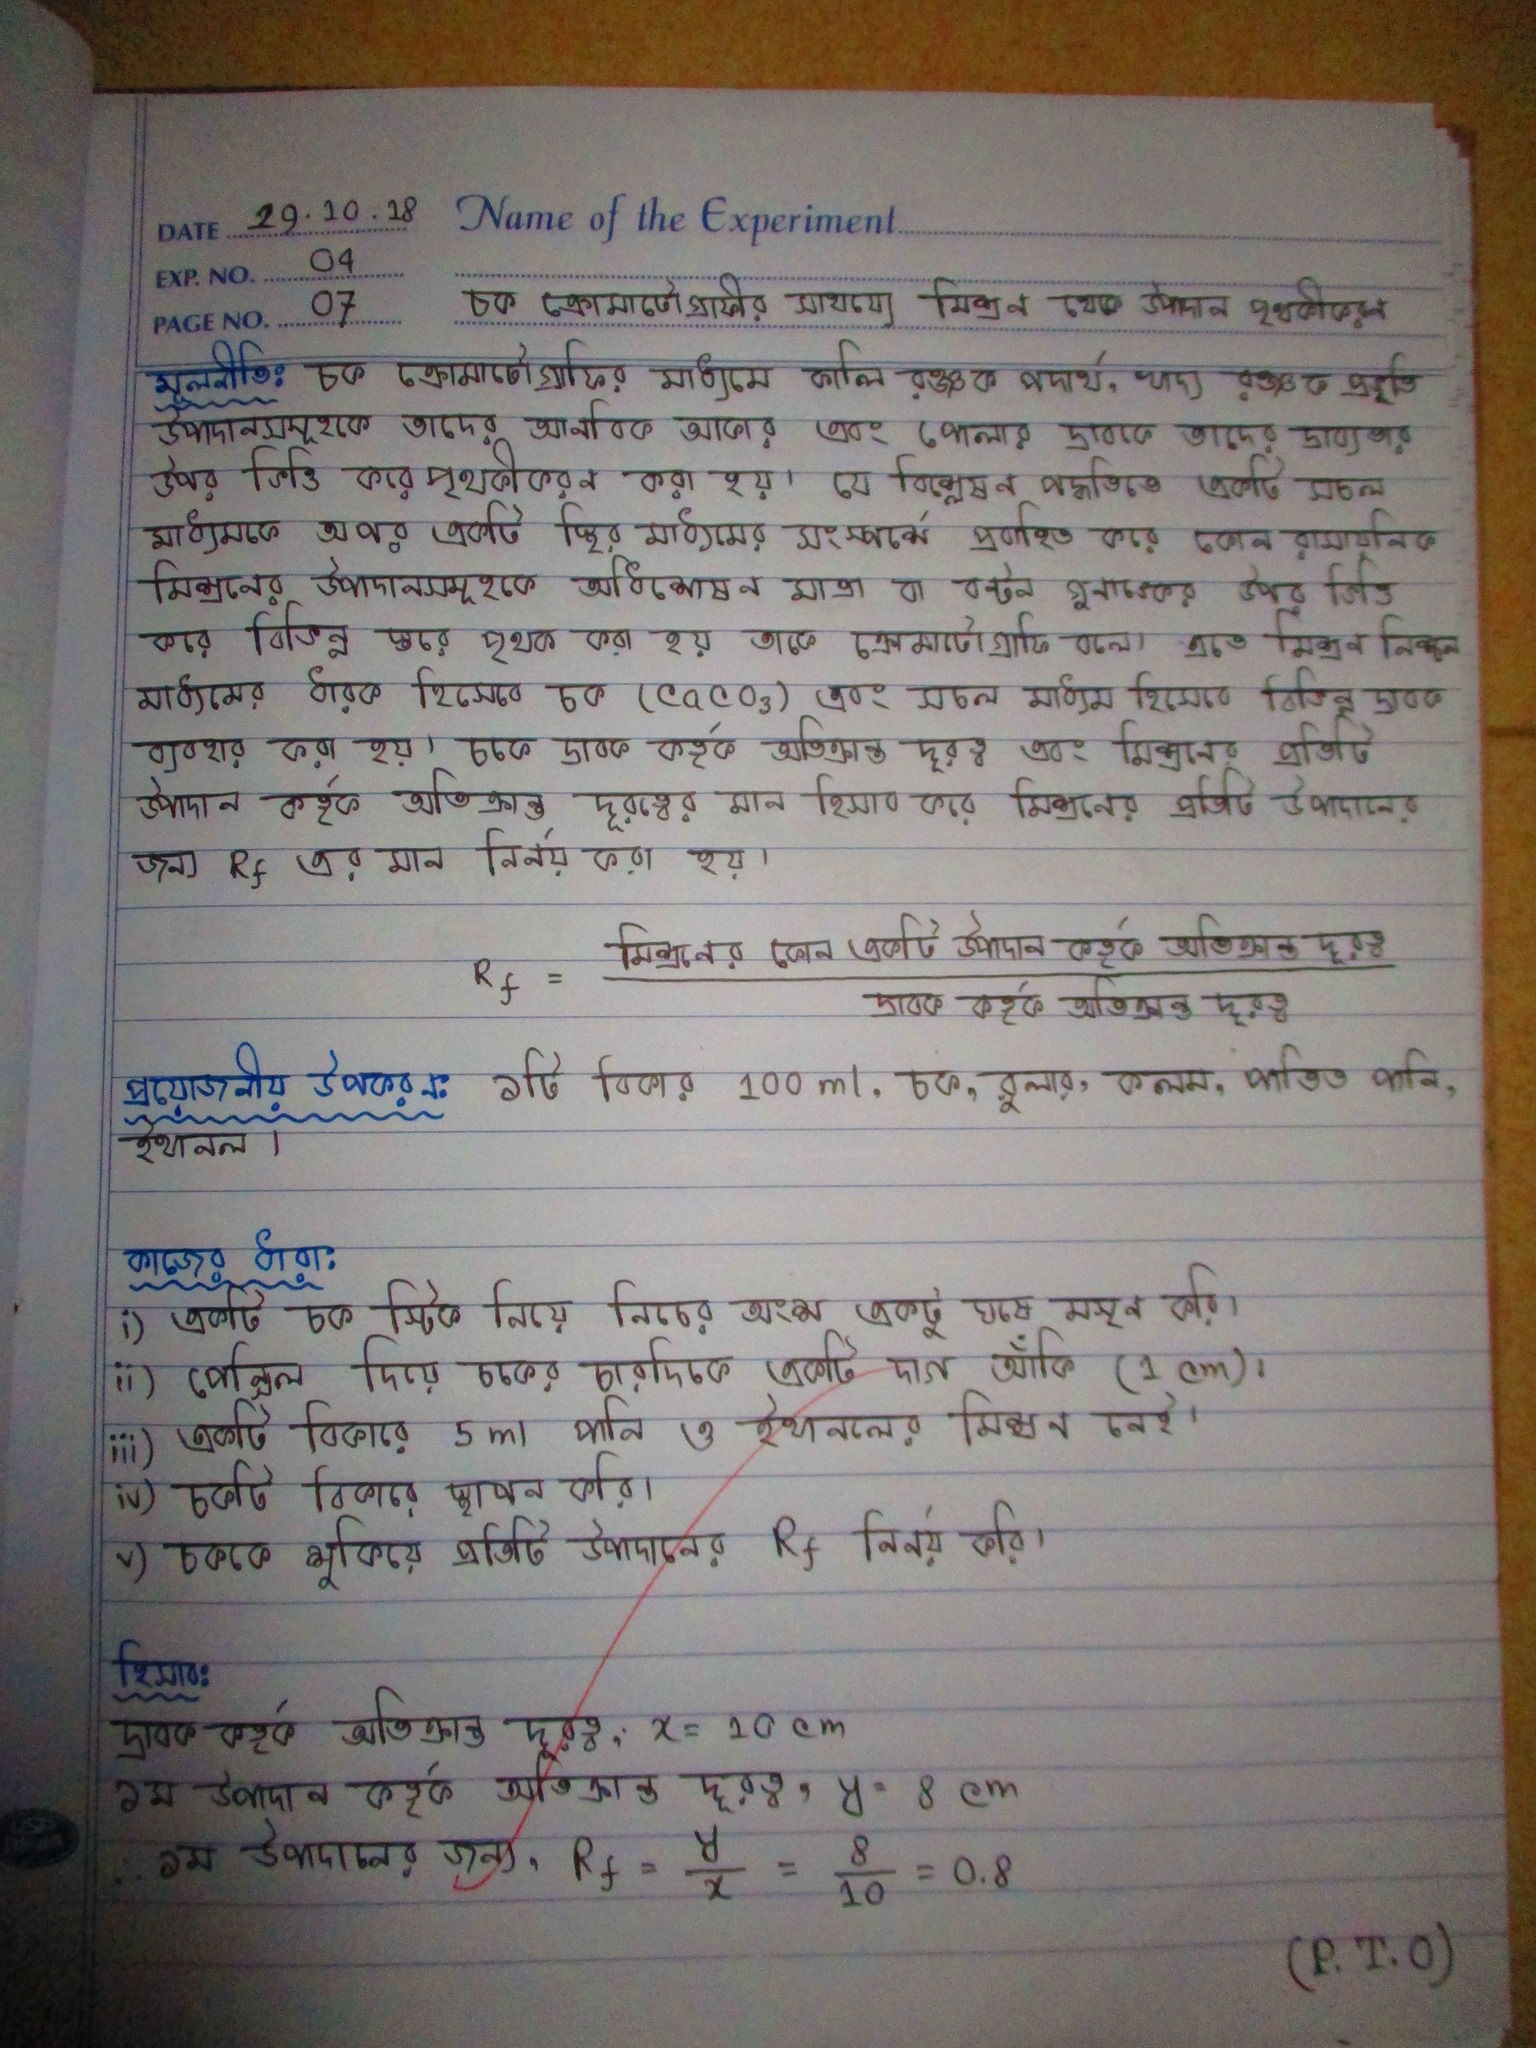 DATE 29.10.18 Name of the Experiment
EXP. NO. 04
PAGE NO. 07 চক ক্রোমাটোগ্রাফীর সাহায্যে মিশ্রন থেকে উপাদান পৃথকীকরন
মূলনীতিঃ চক ক্রোমাটোগ্রাফির মাধ্যমে কালি রঞ্জক পদার্থ, খাদ্য রঞ্জক প্রভৃতি
উপাদানসমূহকে তাদের আনবিক আকার এবং পোলার দ্রাবকে তাদের দ্রাব্যতার
উপর ভিত্তি করে পৃথকীকরন করা হয়। যে বিশ্লেষন পদ্ধতিতে একটি সচল
মাধ্যমকে অপর একটি স্থির মাধ্যমের সংস্পর্শে প্রবাহিত করে কোন রাসায়নিক
মিশ্রনের উপাদানসমূহকে অধিশোষন মাত্রা বা বন্টন গুনাংকের উপর ভিত্তি
করে বিভিন্ন স্তরে পৃথক করা হয় তাকে ক্রোমাটোগ্রাফি বলে। এতে মিশ্রন নিশ্চল
মাধ্যমের ধারক হিসেবে চক (CaCO₃) এবং সচল মাধ্যম হিসেবে বিভিন্ন দ্রাবক
ব্যবহার করা হয়। চকে দ্রাবক কর্তৃক অতিক্রান্ত দূরত্ব এবং মিশ্রনের প্রতিটি
উপাদান কর্তৃক অতিক্রান্ত দূরত্বের মান হিসাব করে মিশ্রনের প্রতিটি উপাদানের
জন্য Rf এর মান নির্নয় করা হয়।
Rf = মিশ্রনের কোন একটি উপাদান কর্তৃক অতিক্রান্ত দূরত্ব
দ্রাবক কর্তৃক অতিক্রান্ত দূরত্ব
প্রয়োজনীয় উপকরনঃ ১টি বিকার 100 ml, চক, রুলার, কলম, পাতিত পানি,
ইথানল।
কাজের ধারাঃ
i) একটি চক স্টিক নিয়ে নিচের অংশ একটু ঘষে মসৃন করি।
ii) পেন্সিল দিয়ে চকের চারদিকে একটি দাগ আঁকি (1 cm)।
iii) একটি বিকারে 5 ml পানি ও ইথানলের মিশ্রন নেই।
iv) চকটি বিকারে স্থাপন করি।
v) চককে শুকিয়ে প্রতিটি উপাদানের Rf নির্নয় করি।
হিসাবঃ
দ্রাবক কর্তৃক অতিক্রান্ত দূরত্ব, x = 10 cm
১ম উপাদান কর্তৃক অতিক্রান্ত দূরত্ব, y = 8 cm
∴ ১ম উপাদানের জন্য, Rf = y/x = 8/10 = 0.8
(P.T.O)